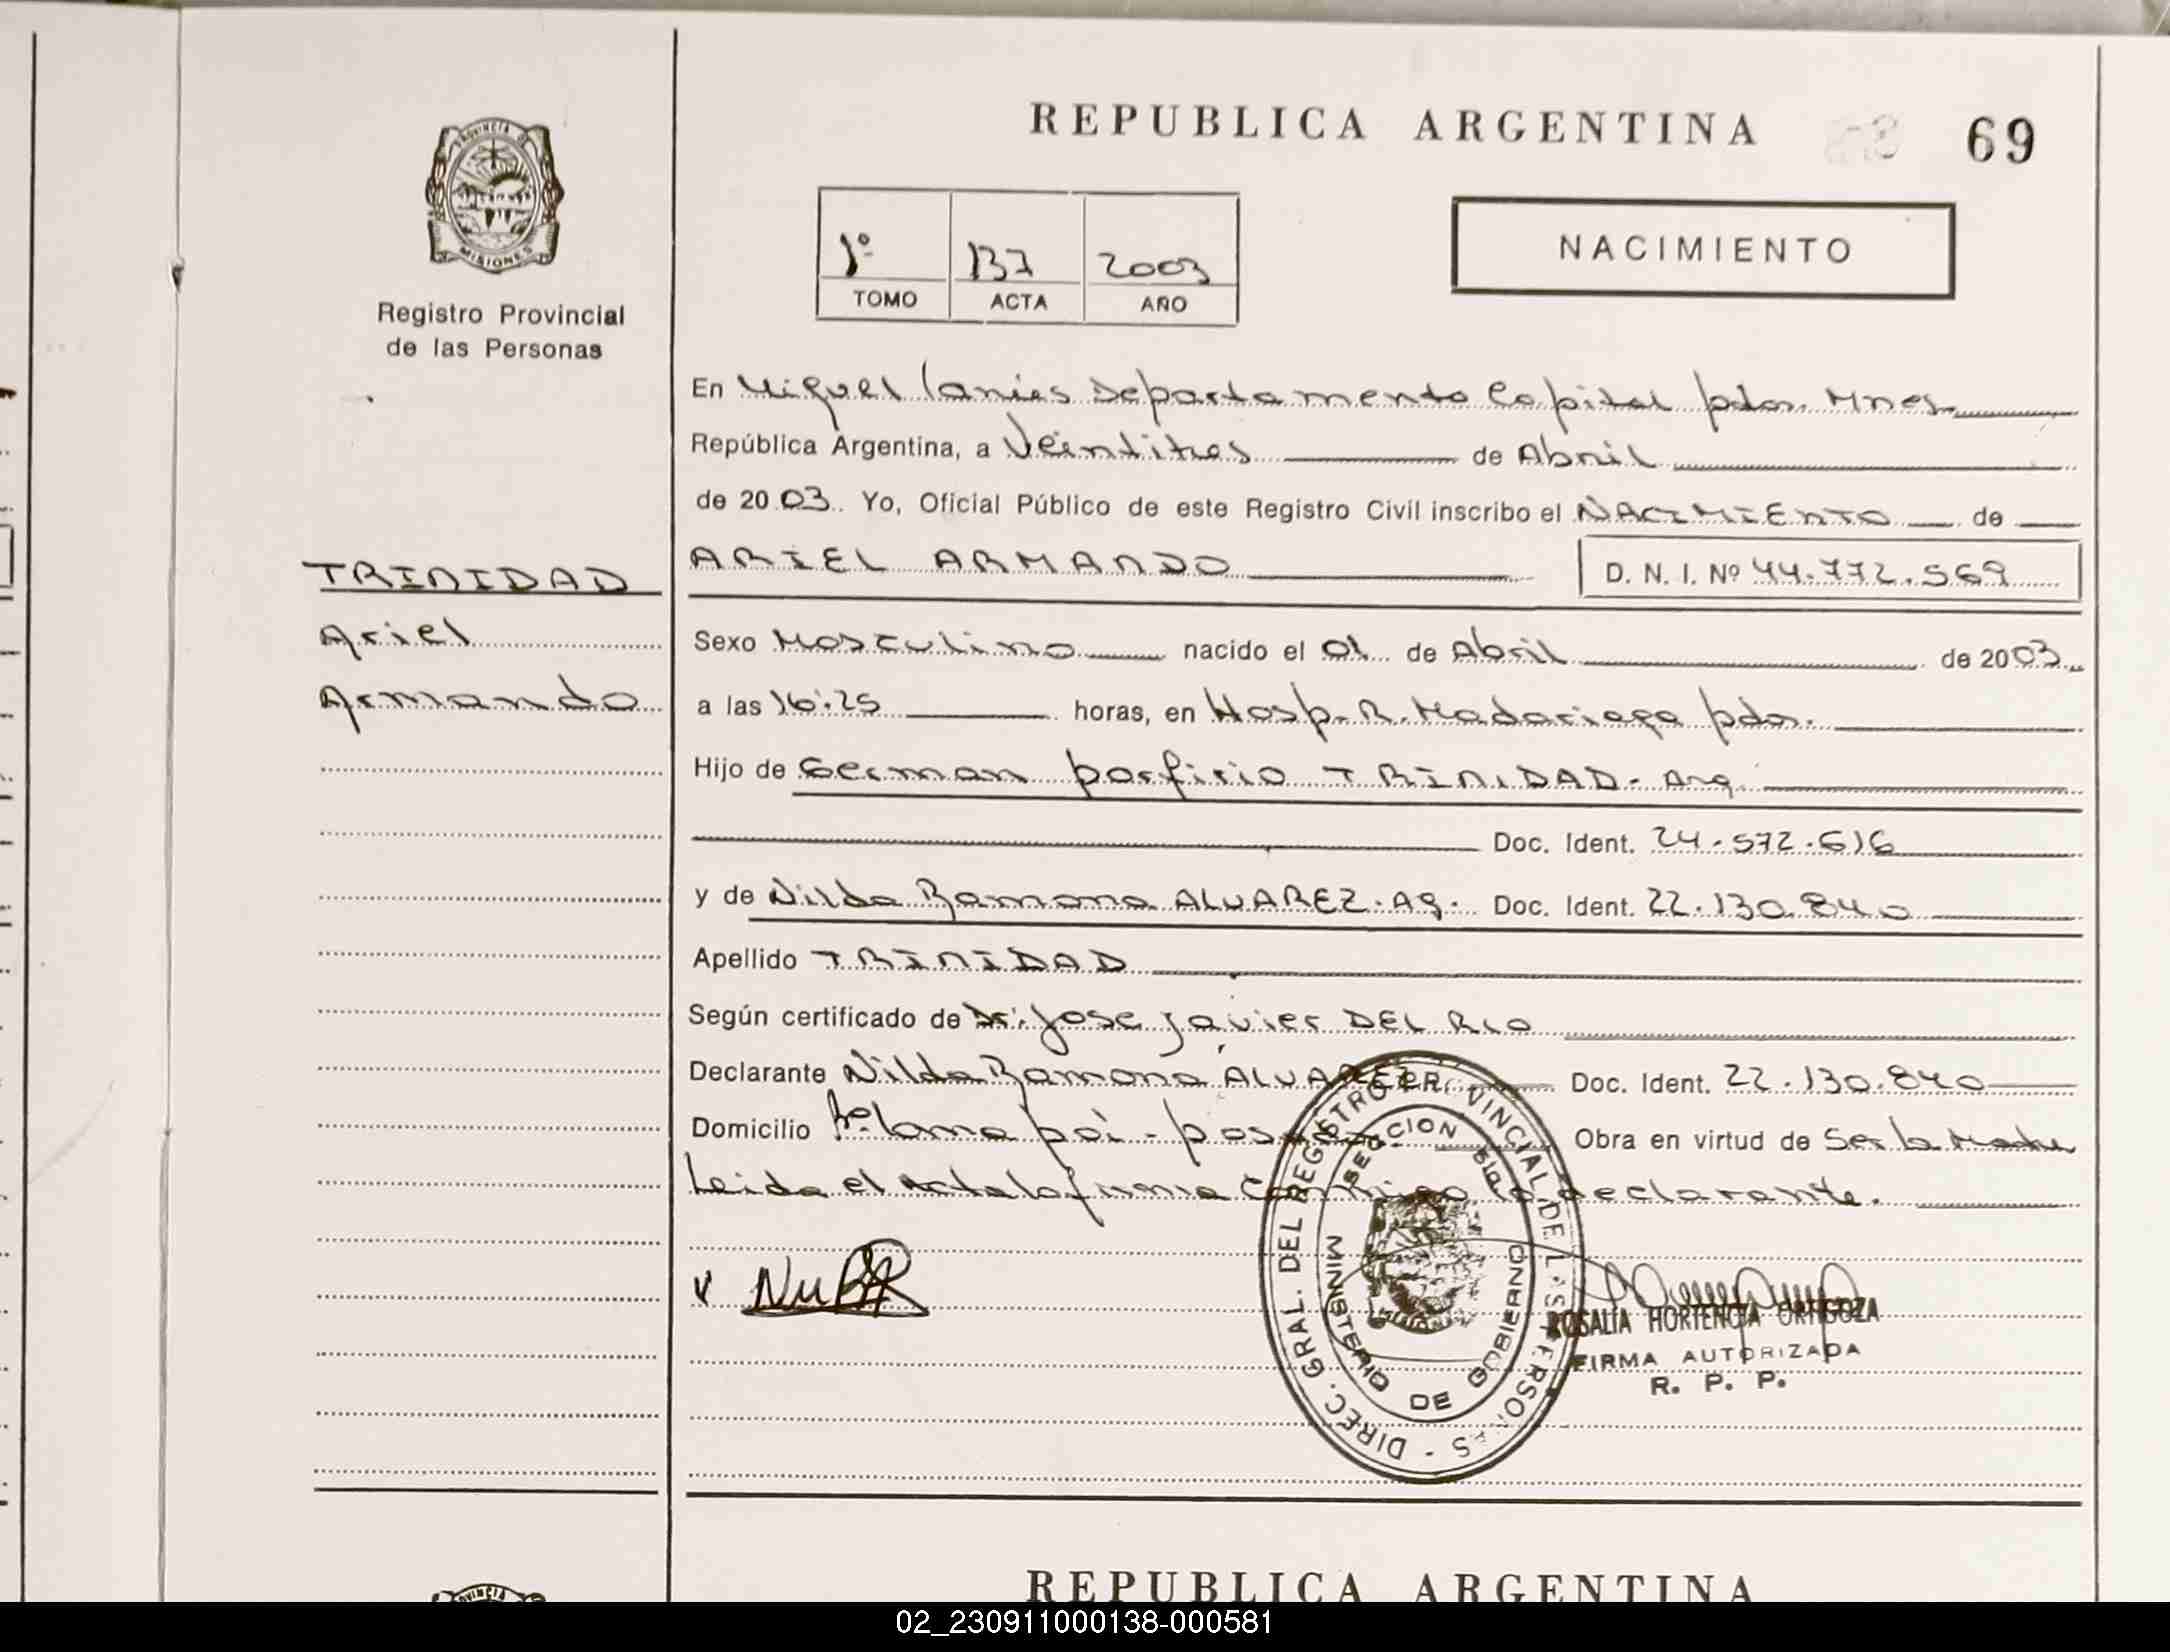 REPUBLICA ARGENTINA
69
PROVINCIA DE
MISIONES
Registro Provincial
de las Personas
1º 137 2003
TOMO ACTA AÑO
NACIMIENTO
En Miguel Lanús Departamento Capital pdas. Mnes.
República Argentina, a Veintitres de Abril
de 2003. Yo, Oficial Público de este Registro Civil inscribo el NACIMIENTO de
TRINIDAD
Ariel
Armando
ARIEL ARMANDO D. N. I. Nº 44.772.569
Sexo Masculino nacido el 01 de Abril de 2003
a las 16:25 horas, en Hosp. R. Madariaga pdas.
Hijo de German Porfirio TRINIDAD - Arg.
Doc. Ident. 24.572.616
y de Nilda Ramona ALVAREZ. Ag. Doc. Ident. 22.130.840
Apellido TRINIDAD
Según certificado de Dr. Jose Javier DEL RIO
Declarante Nilda Ramona ALVAREZ Doc. Ident. 22.130.840
Domicilio Obra en virtud de Ser la Madre
Leida el Acta la firma Conmigo la declarante.
DIREC. GRAL. DEL REGISTRO PROVINCIAL DE LAS PERSONAS
SECCION
MINISTERIO DE GOBIERNO
ROSALIA HORTENCIA ORTIGOZA
FIRMA AUTORIZADA
R. P. P.
PROVINCIA
REPUBLICA ARGENTINA
02_230911000138-000581